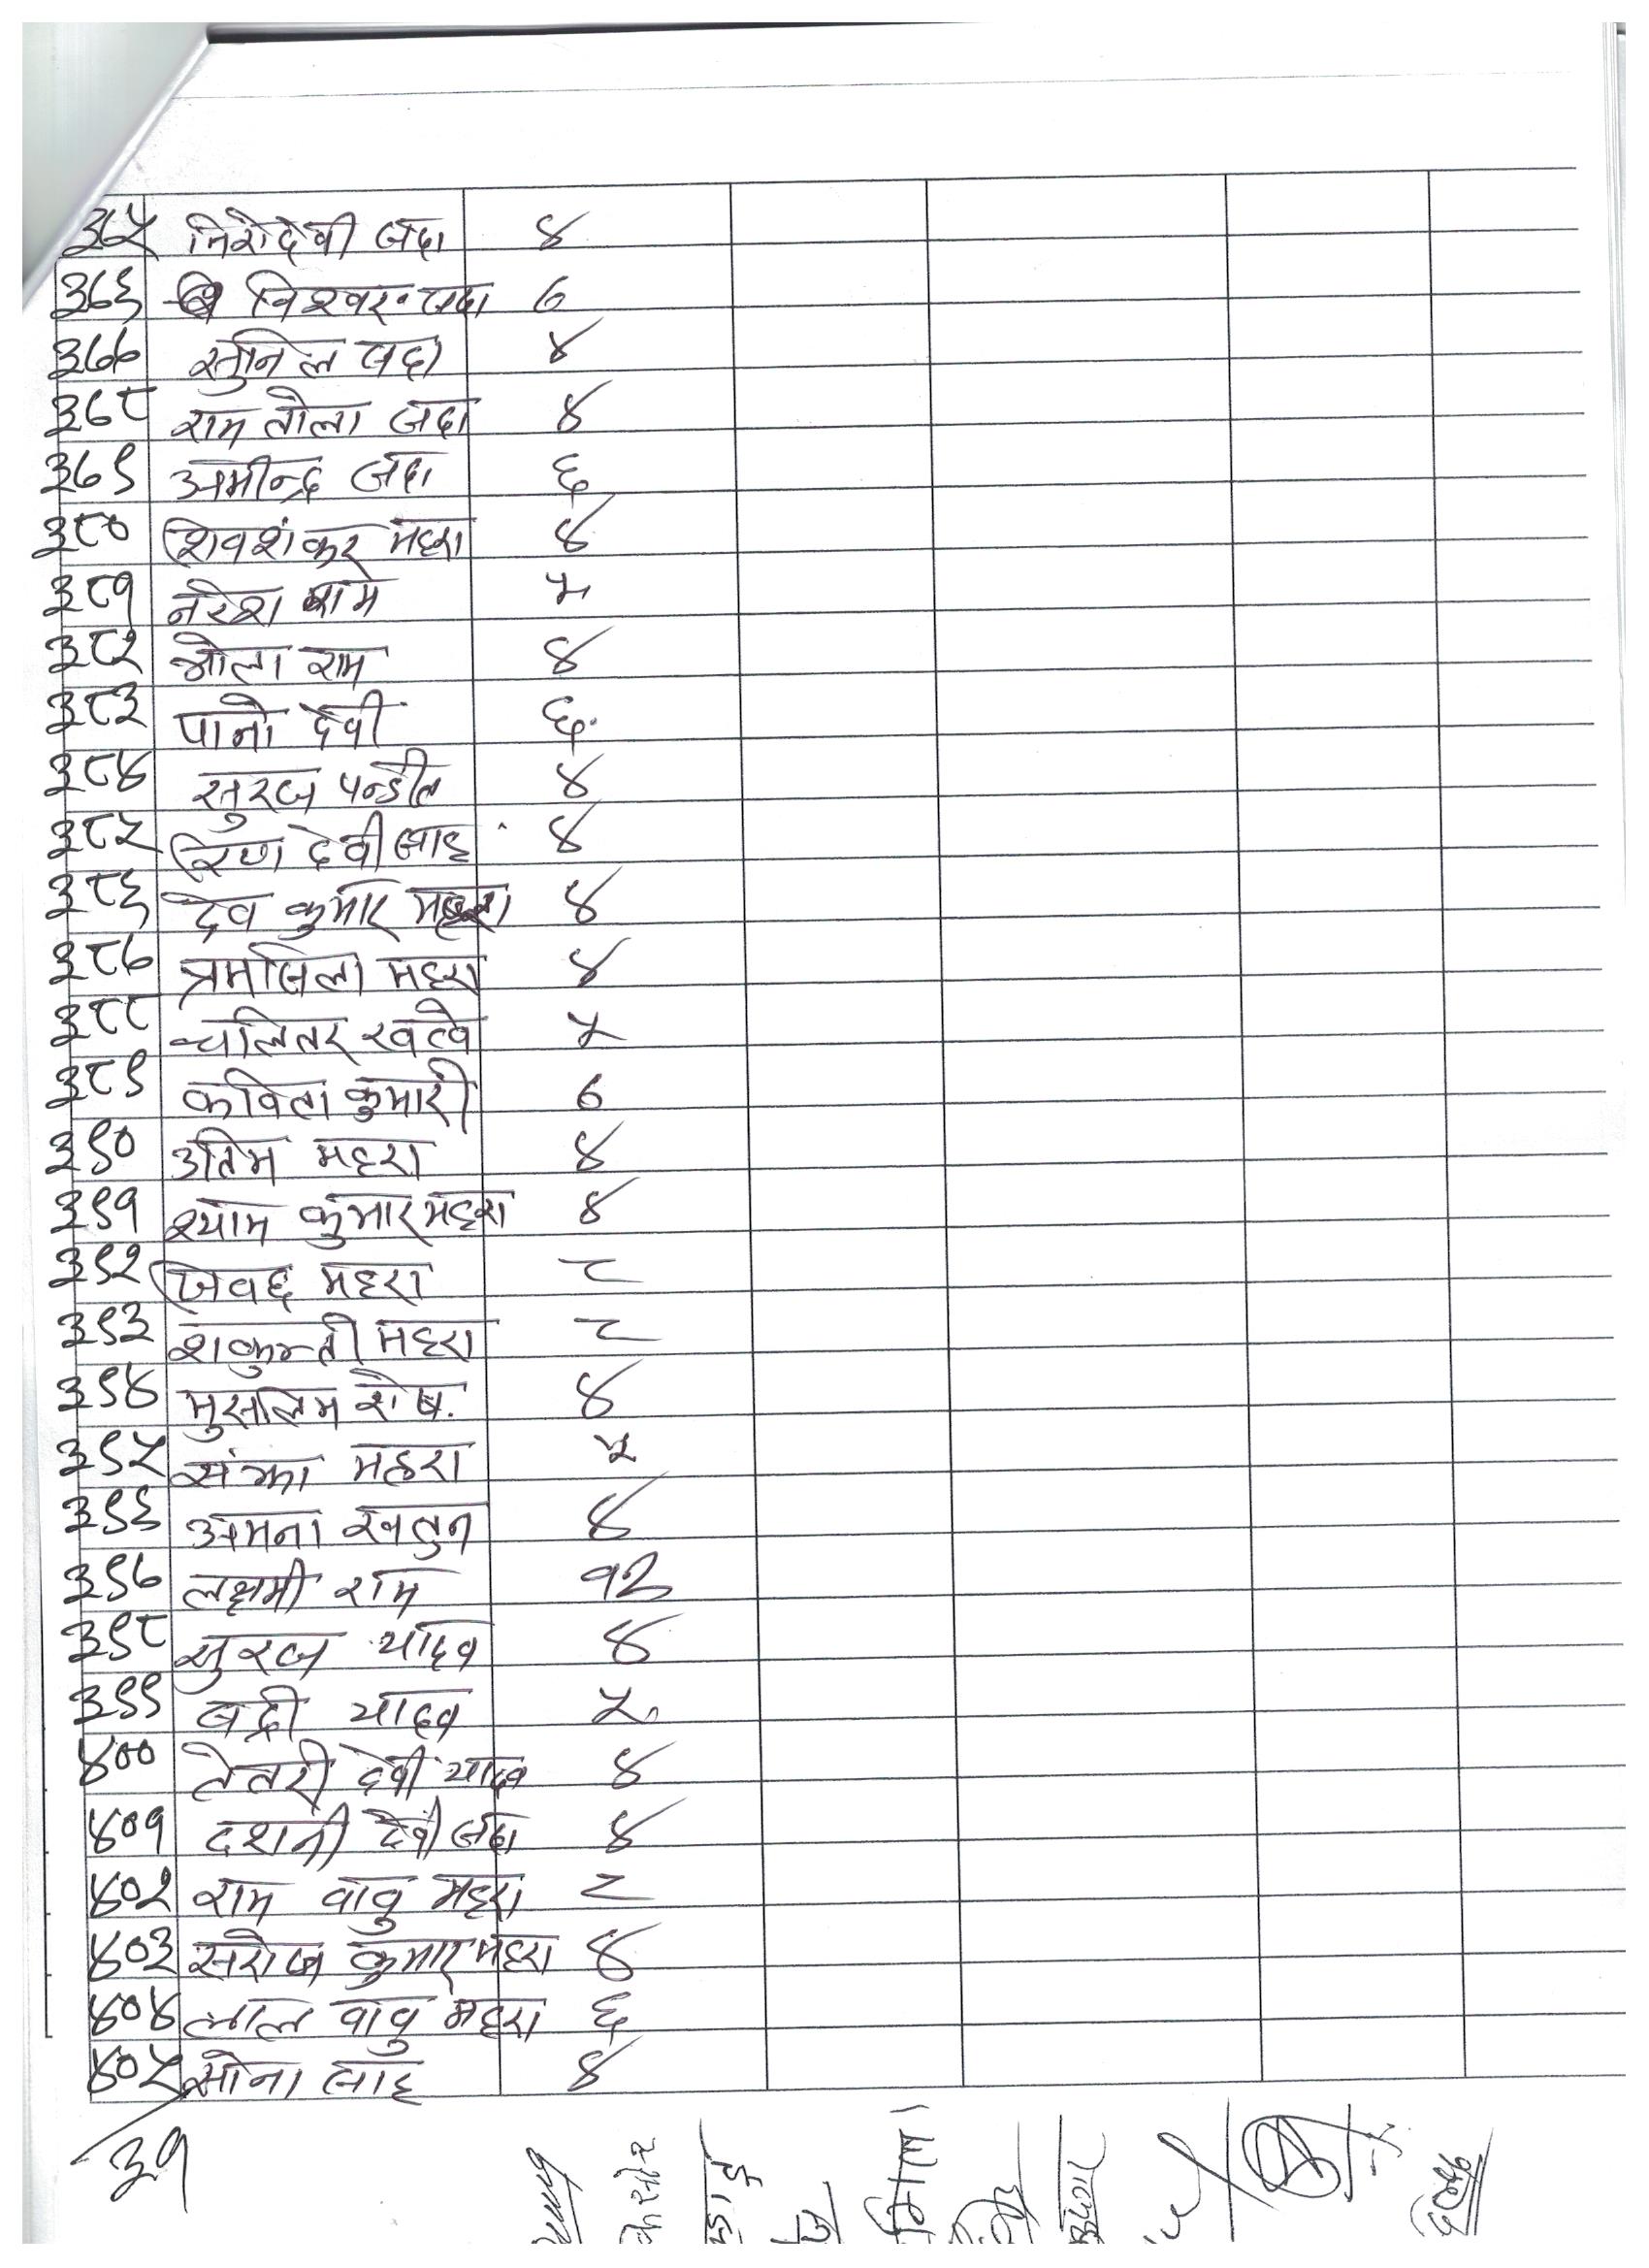 ३७५ निरोदेवी सदा ४
३७६ विश्वर सदा ७
३७७ सुनिल सदा ४
३७८ राम तोला सदा ४
३७९ अमीन्द्र सदा ६
३८० शिवशंकर महरा ४
३८१ नरेश राम ५
३८२ भोला राम ४
३८३ पानो देवी ६
३८४ सुरज पन्डीत ४
३८५ देवी साह ४
३८६ देव कुमार महरा ४
३८७ प्रमशिला महरा ४
३८८ चलितर खत्वे ५
३८९ कविता कुमारी ७
३९० उतिम महरा ४
३९१ श्याम कुमार महरा ४
३९२ जिवछ महरा ८
३९३ शकुन्ती महरा ८
३९४ मुसलिम शेष ४
३९५ संझा महरा ५
३९६ अमना खतुन ४
३९७ लक्षमी राम १२
३९८ सुरज यादव ४
३९९ बद्री यादव ५
४०० तेतरी देवी यादव ४
४०१ दशनी देवी सदा ४
४०२ राम वावु महरा ८
४०३ सरोज कुमार महरा ४
४०४ लाल वावु महरा ६
४०५ सोना साह ४
३१